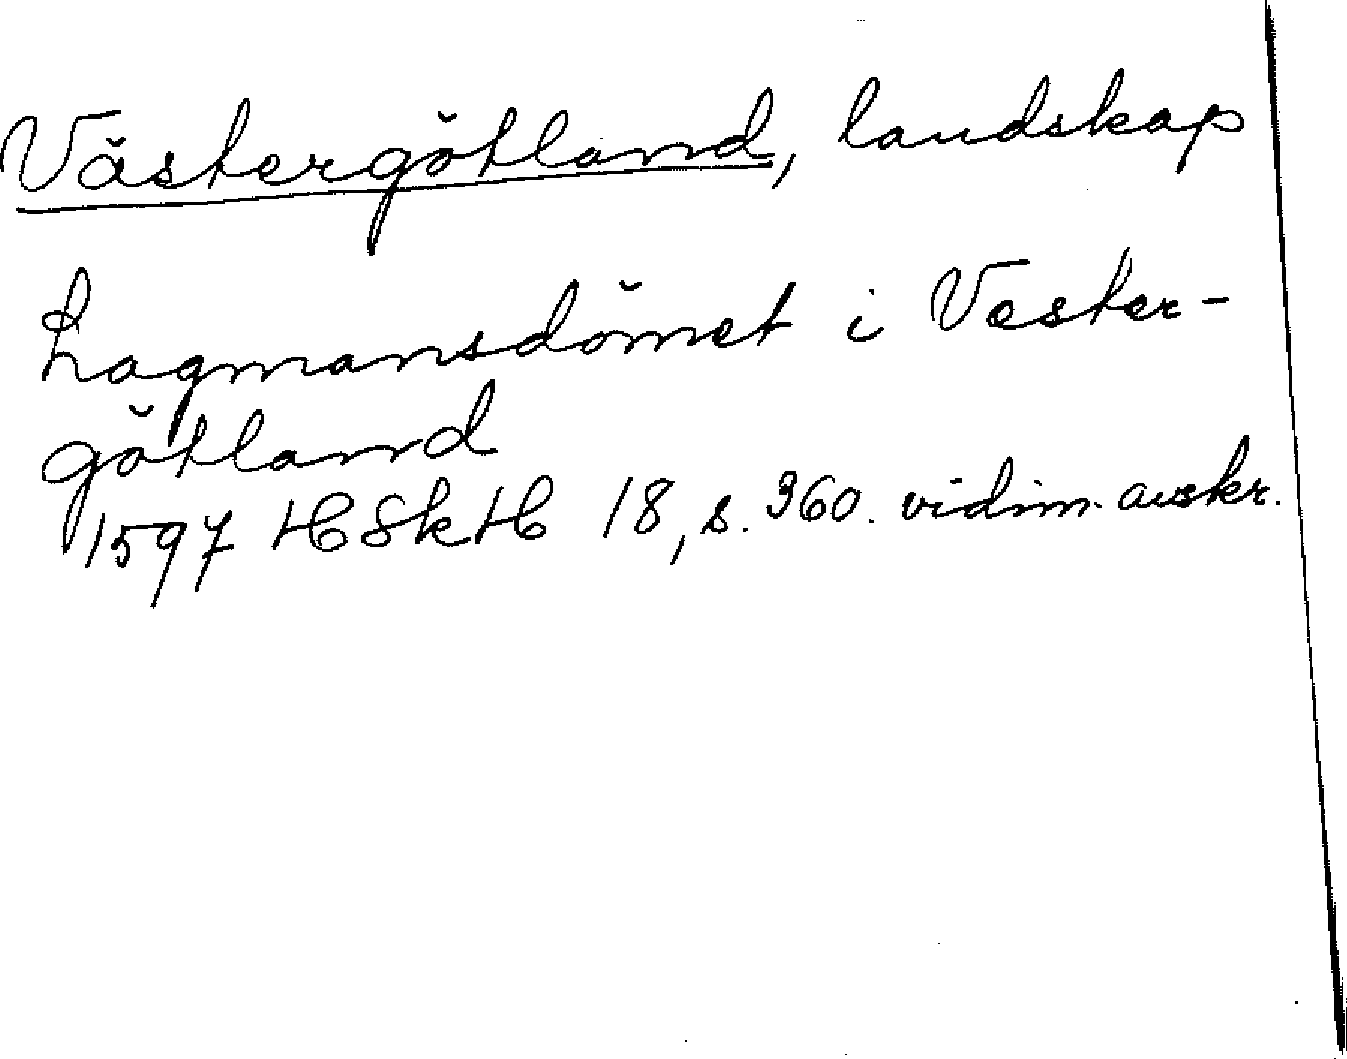 Västergötland, landskap
Lagmansdömet i Vester-
götland
1597 HSkH 18, s. 360. vidim. avskr.